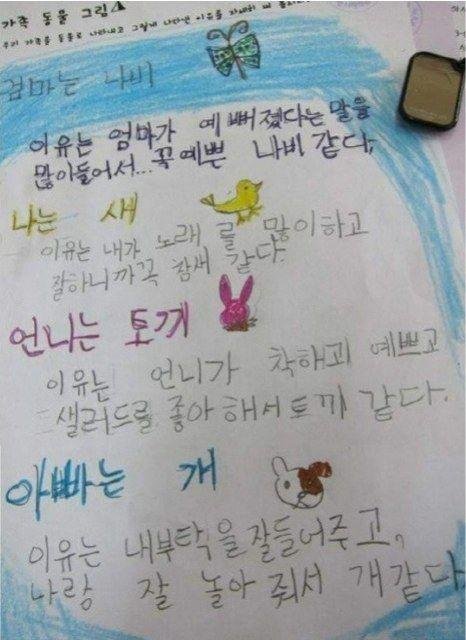 가족 동물 그림
우리 가족을 동물로 나타내고 그렇게 나타낸 이유를 자세히 써
엄마는 나비
이유는 엄마가 예뻐졌다는 말을
많이들어서... 꼭예쁜 나비 같다,
나는 새
이유는 내가 노래를 많이하고
잘하니까꼭 참새 같다.
언니는 토끼
이유는 언니가 착해괴 예쁘고
샐러드를 좋아해서토끼 같다.
아빠는 개
이유는 내부탁을잘들어주고,
나랑 잘 놀아 줘서 개같다